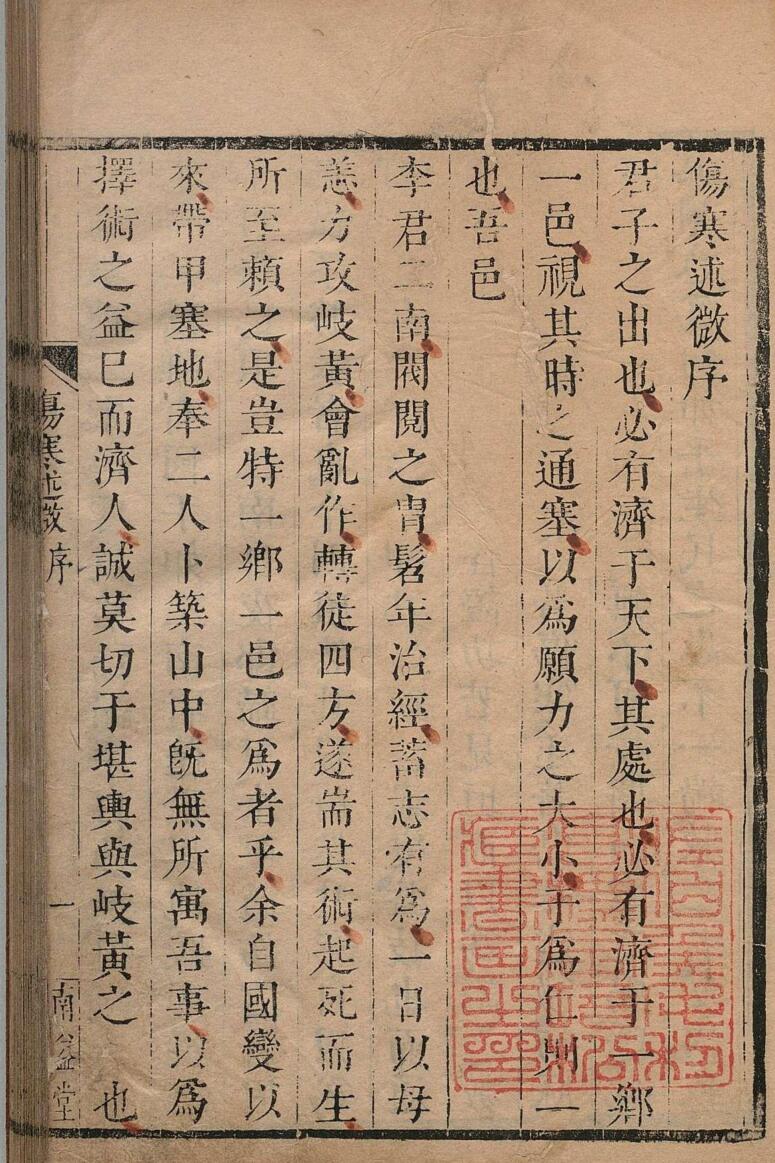 傷寒述微序
君子之出也必有濟于天下其處也必有濟于一鄉
一邑視其時之通塞以為願力之大小于為仁則一
也吾邑
李君二南閥閱之冑髫年治經蓄志有為一日以母
恙方攻岐黃會亂作轉徒四方遂耑其術起死而生
所至賴之是豈特一鄉一邑之為者乎余自國變以
來帶甲塞地奉二人卜築山中旣無所寓吾事以為
擇術之益巳而濟人誠莫切于堪輿與岐黃之 也
傷寒述微 序 一 南益堂